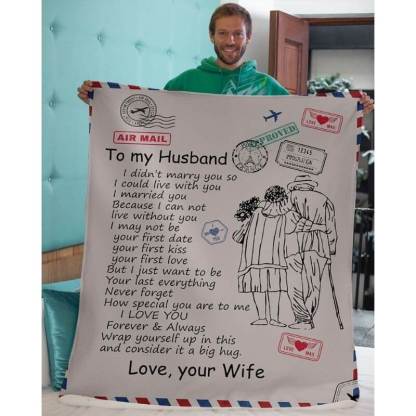 AIR MAIL
APPROVED
LOVE MAIL
12345
To my Husband
I didn't marry you so
I could live with you
I married you
Because I can not
live without you
I may not be
your first date
your first kiss
your first love
But I just want to be
Your last everything
Never forget
How special you are to me
I LOVE YOU
Forever & Always
Wrap yourself up in this
and consider it a big hug.
Love, your Wife
LOVE MAIL